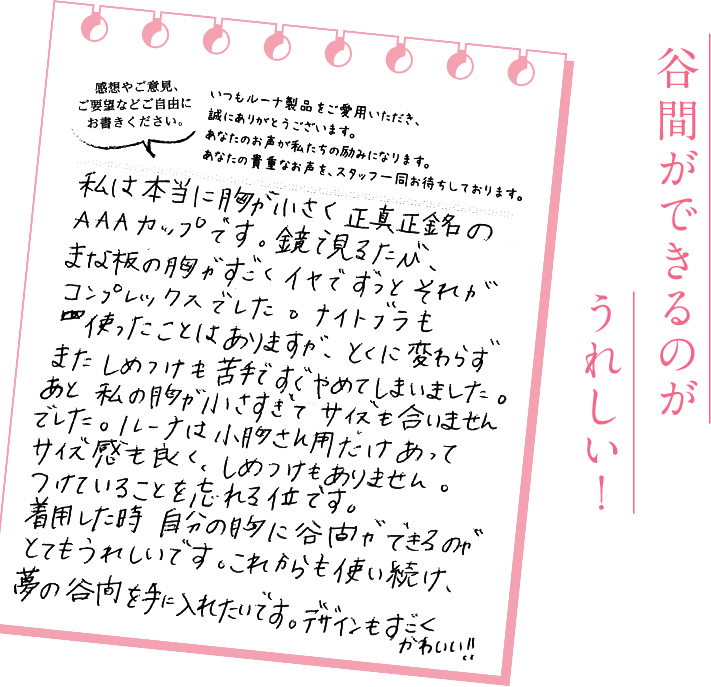 谷間ができるのが
うれしい！
感想やご意見、
ご要望などご自由に
お書きください。
いつもルーナ製品をご愛用いただき、
誠にありがとうございます。
あなたのお声が私たちの励みになります。
あなたの貴重なお声を、スタッフ一同お待ちしております。
私は本当に胸が小さく正真正銘の
AAAカップです。鏡で見るたび、
まな板の胸がすごくイヤでずっとそれが
コンプレックスでした。ナイトブラも
使ったことはありますが、とくに変わらず
またしめつけも苦手ですぐやめてしまいました。
あと私の胸が小さすぎてサイズも合いません
でした。ルーナは小胸さん用だけあって
サイズ感も良く、しめつけもありません。
つけていることを忘れる位です。
着用した時自分の胸に谷間ができるのが
とてもうれしいです。これからも使い続け、
夢の谷間を手に入れたいです。デザインもすごく
かわいい!!